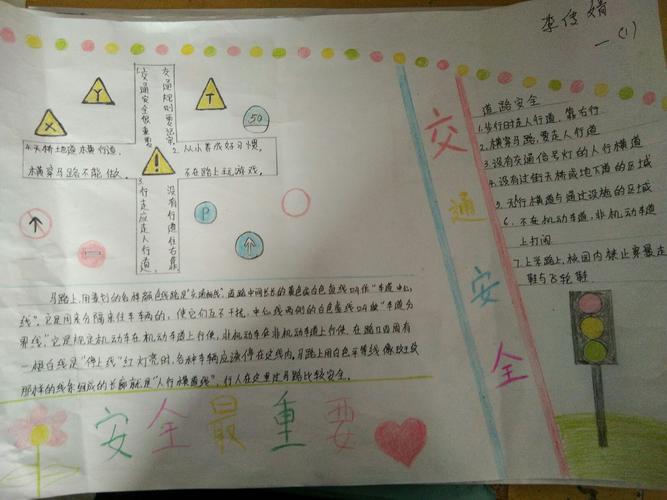 李传婧
一(1)
交通规则要记牢,
交通安全很重要。
4.天桥地道横行道,
横穿马路不能做。
2.从小养成好习惯,
不在路上玩游戏。
没有行道往右靠
3.行走应走人行道,
Y
T
X
50
P
!
交通安全
道路安全
1.步行时走人行道,靠右行
2.横穿马路,要走人行道
3.没有交通信号灯的人行横道
4.没有过街天桥或地下道的区域
5.无人行横道与通过设施的区域
6.不在机动车道,非机动车道
上打闹
7.上学路上,校园内禁止穿暴走
鞋与飞轮鞋
马路上,用意划的各种颜色线路是"交通标线"。道路中间长长的黄色或白色直线叫作"车道中心
线"。它是用来分隔来往车辆的,使它们互不干扰,中心线两侧的白色虚线叫做"车道分
界线"。它是规定机动车在机动车道上行使,非机动车在非机动车道上行使。在路口四周有
一根白线是"停止线"红灯亮时,各种车辆应该停在这线内。马路上用白色平等线像斑纹
那样的线条组成的长廊就是"人行横道线"。行人在这里过马路比较安全。
安全最重要